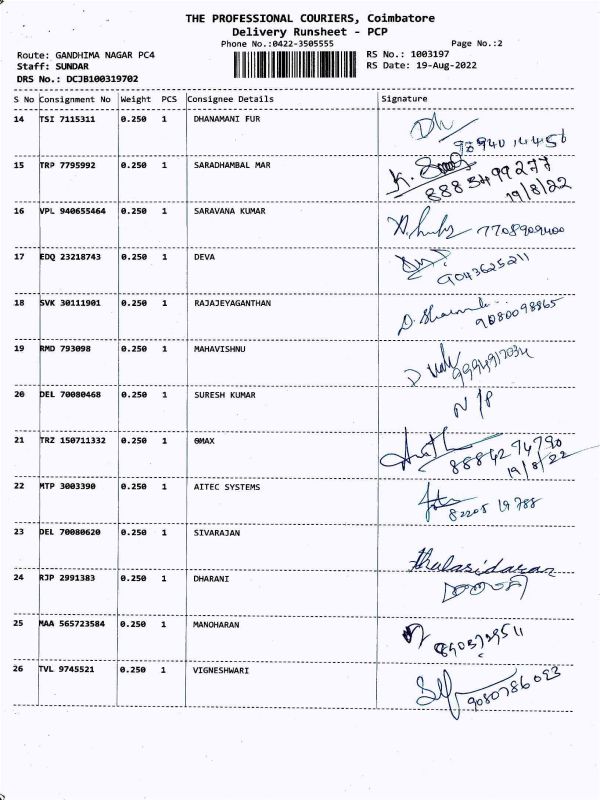 THE PROFESSIONAL COURIERS, Coimbatore
Delivery Runsheet - PCP
Phone No.:0422-3505555
Page No.:2
Route: GANDHIMA NAGAR PC4
RS No.: 1003197
Staff: SUNDAR
RS Date: 19-Aug-2022
DRS No.: DCJB100319702
S No Consignment No Weight PCS Consignee Details Signature
14 TSI 7115311 0.250 1 DHANAMANI FUR
15 TRP 7795992 0.250 1 SARADHAMBAL MAR
8883499277
19/8/22
16 VPL 940655464 0.250 1 SARAVANA KUMAR
7708909400
17 EDQ 23218743 0.250 1 DEVA
9043625211
18 SVK 30111901 0.250 1 RAJAJEYAGANTHAN
9080098865
19 RMD 793098 0.250 1 MAHAVISHNU
20 DEL 70080468 0.250 1 SURESH KUMAR
N/P
21 TRZ 150711332 0.250 1 GMAX
8884274790
19/8/22
22 MTP 3003390 0.250 1 AITEC SYSTEMS
82205 19788
23 DEL 70080620 0.250 1 SIVARAJAN
Thulasidaran
24 RJP 2991383 0.250 1 DHARANI
25 MAA 565723584 0.250 1 MANOHARAN
26 TVL 9745521 0.250 1 VIGNESHWARI
9080786093